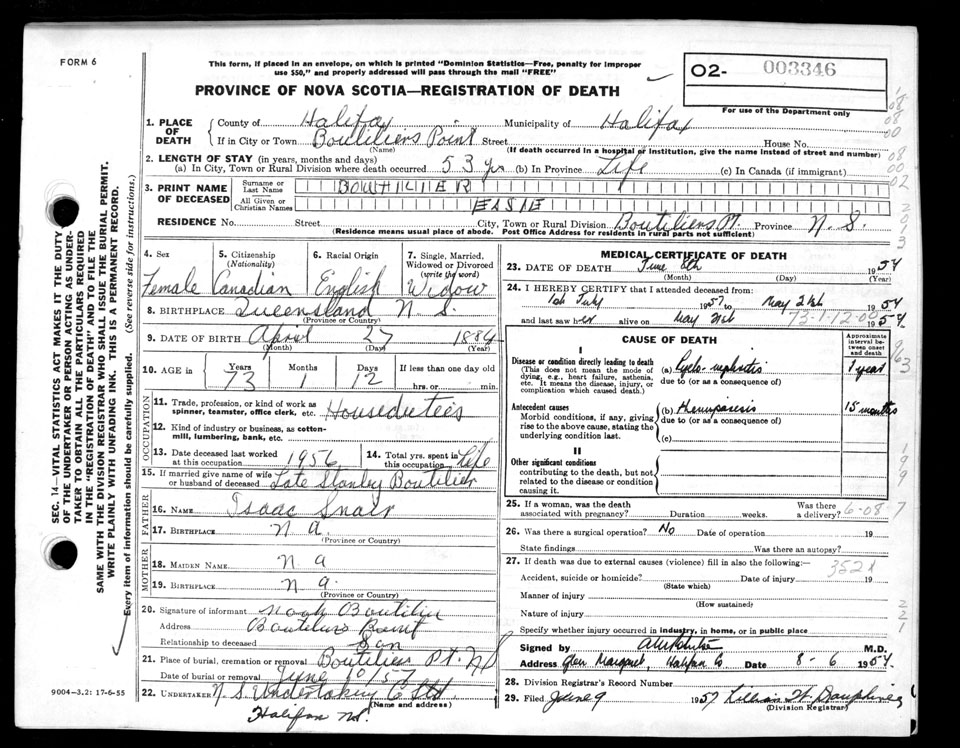 FORM 6
This form, if placed in an envelope, on which is printed "Dominion Statistics—Free, penalty for improper
use $50," and properly addressed will pass through the mail "FREE"
02- 003346
For use of the Department only
PROVINCE OF NOVA SCOTIA—REGISTRATION OF DEATH
1. PLACE OF DEATH
County of Halifax Municipality of Halifax
If in City or Town Boutiliers Point Street House No.
(Name) (If death occurred in a hospital or institution, give the name instead of street and number)
2. LENGTH OF STAY (in years, months and days)
(a) In City, Town or Rural Division where death occurred 53 yrs (b) In Province Life (c) In Canada (if immigrant)
3. PRINT NAME OF DECEASED
Surname or Last Name BOUTILIER
All Given or Christian Names ELSIE
RESIDENCE No. Street City, Town or Rural Division Boutiliers Pt. Province N. S.
(Residence means usual place of abode. Post Office Address for residents in rural parts not sufficient)
4. Sex Female
5. Citizenship (Nationality) Canadian
6. Racial Origin English
7. Single, Married, Widowed or Divorced (write the word) Widow
8. BIRTHPLACE Queensland N. S.
(Province or Country)
9. DATE OF BIRTH April 27 1884
(Month) (Day) (Year)
10. AGE in Years 73 Months 1 Days 12 If less than one day old
hrs. or min.
OCCUPATION
11. Trade, profession, or kind of work as spinner, teamster, office clerk, etc. Houseduties
12. Kind of industry or business, as cotton-mill, lumbering, bank, etc.
13. Date deceased last worked at this occupation 1956
14. Total yrs. spent in this occupation Life
15. If married give name of wife or husband of deceased Late Stanley Boutilier
FATHER
16. NAME Isaac Snair
17. BIRTHPLACE N a.
(Province or Country)
MOTHER
18. MAIDEN NAME N a
19. BIRTHPLACE N a.
(Province or Country)
20. Signature of informant Noah Boutilier
Address Boutiliers Point
Relationship to deceased Son
21. Place of burial, cremation or removal Boutiliers Pt. NS
Date of burial or removal June 10/57
22. UNDERTAKER N. S. Undertaking Co Ltd.
(Name and address)
Halifax NS.
MEDICAL CERTIFICATE OF DEATH
23. DATE OF DEATH June 8th 1957
(Month) (Day) (Year)
24. I HEREBY CERTIFY that I attended deceased from:
1957 to May 21st 1957
and last saw her alive on May 21st 1957
73-1-12-00
CAUSE OF DEATH
Approximate interval between onset and death
I
Disease or condition directly leading to death
(This does not mean the mode of dying, e.g., heart failure, asthenia, etc. It means the disease, injury, or complication which caused death.)
(a) Pyelo-nephritis 1 year
due to (or as a consequence of)
Antecedent causes
Morbid conditions, if any, giving rise to the above cause, stating the underlying condition last.
(b) Hemiparesis 15 months
due to (or as a consequence of)
(c)
II
Other significant conditions
contributing to the death, but not related to the disease or condition causing it.
25. If a woman, was the death associated with pregnancy? Duration weeks. Was there a delivery? 6-08
26. Was there a surgical operation? No Date of operation 19
State findings Was there an autopsy?
27. If death was due to external causes (violence) fill in also the following:
Accident, suicide or homicide? Date of injury 19
(State which)
Manner of injury
(How sustained)
Nature of injury
Specify whether injury occurred in industry, in home, or in public place
Signed by M.D.
Address Glen Margaret, Halifax Co Date 8-6 1957
28. Division Registrar's Record Number
29. Filed June 9 1957 Lillian W. Dauphinee
(Division Registrar)
SEC. 14—VITAL STATISTICS ACT MAKES IT THE DUTY
OF THE UNDERTAKER OR PERSON ACTING AS UNDER-
TAKER TO OBTAIN ALL THE PARTICULARS REQUIRED
IN THE "REGISTRATION OF DEATH" AND TO FILE THE
SAME WITH THE DIVISION REGISTRAR WHO SHALL ISSUE THE BURIAL PERMIT.
WRITE PLAINLY WITH UNFADING INK. THIS IS A PERMANENT RECORD.
Every item of information should be carefully supplied. (See reverse side for instructions.)
9004-3.2: 17-6-55